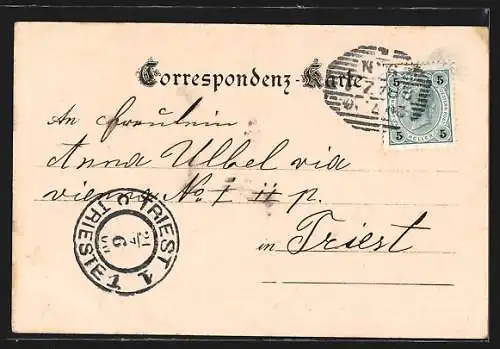 Correspondenz-Karte
An Fräulein
Anna Ulbel via
vienna No I II p.
in Triest
5 5
5 HELLER 5
TRIEST 1
TRIESTE 1
21/7
6